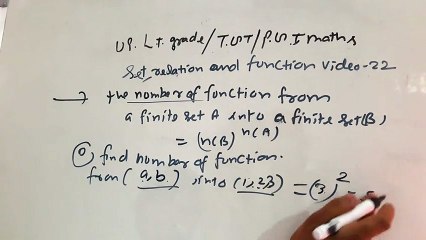 UP. LT. grade/T.G.T/P.G.T maths
Set, relation and function video-22
→ the number of function from
a finite set A into a finite set(B),
= (n(B))^n(A)
Q, find number of function.
from (a,b) into (1,2,3) = (3)^2 =